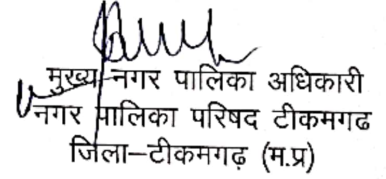 मुख्य नगर पालिका अधिकारी
नगर पालिका परिषद टीकमगढ
जिला–टीकमगढ़ (म.प्र)